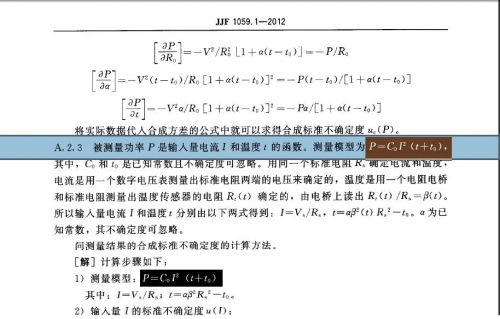 JJF 1059.1—2012
[∂P/∂R₀]=−V²/R₀² [1+α(t−t₀)]=−P/R₀
[∂P/∂α]=−V²(t−t₀)/R₀ [1+α(t−t₀)]²=−P(t−t₀)/[1+α(t−t₀)]
[∂P/∂t]=−V²α/R₀ [1+α(t−t₀)]²=−Pα/[1+α(t−t₀)]
将实际数据代入合成方差的公式中就可以求得合成标准不确定度 u_c(P)。
A.2.3 被测量功率 P 是输入量电流 I 和温度 t 的函数。测量模型为 P=C₀I²(t+t₀),
其中, C₀ 和 t₀ 是已知常数且不确定度可忽略。用同一个标准电阻 Rₛ 确定电流和温度,
电流是用一个数字电压表测量出标准电阻两端的电压来确定的, 温度是用一个电阻电桥
和标准电阻测量出温度传感器的电阻 Rₜ(t) 确定的, 由电桥上读出 Rₜ(t)/Rₛ=β(t)。
所以输入量电流 I 和温度 t 分别由以下两式得到: I=Vₛ/Rₛ, t=αβ²(t)Rₛ²−t₀。α 为已
知常数, 其不确定度可忽略。
问测量结果的合成标准不确定度的计算方法。
[解] 计算步骤如下:
1) 测量模型: P=C₀I² (t+t₀)
其中: I=Vₛ/Rₛ; t=αβ²Rₛ²−t₀。
2) 输入量 I 的标准不确定度 u(I);